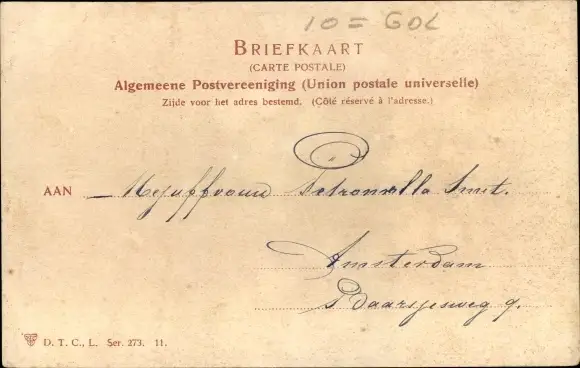 10 = GOL
BRIEFKAART
(CARTE POSTALE)
Algemeene Postvereeniging (Union postale universelle)
Zijde voor het adres bestemd. (Côté réservé à l'adresse.)
AAN Mejuffrouw Petronella Smit.
Amsterdam
Baarsjesweg 9.
D. T. C., L. Ser. 273. 11.